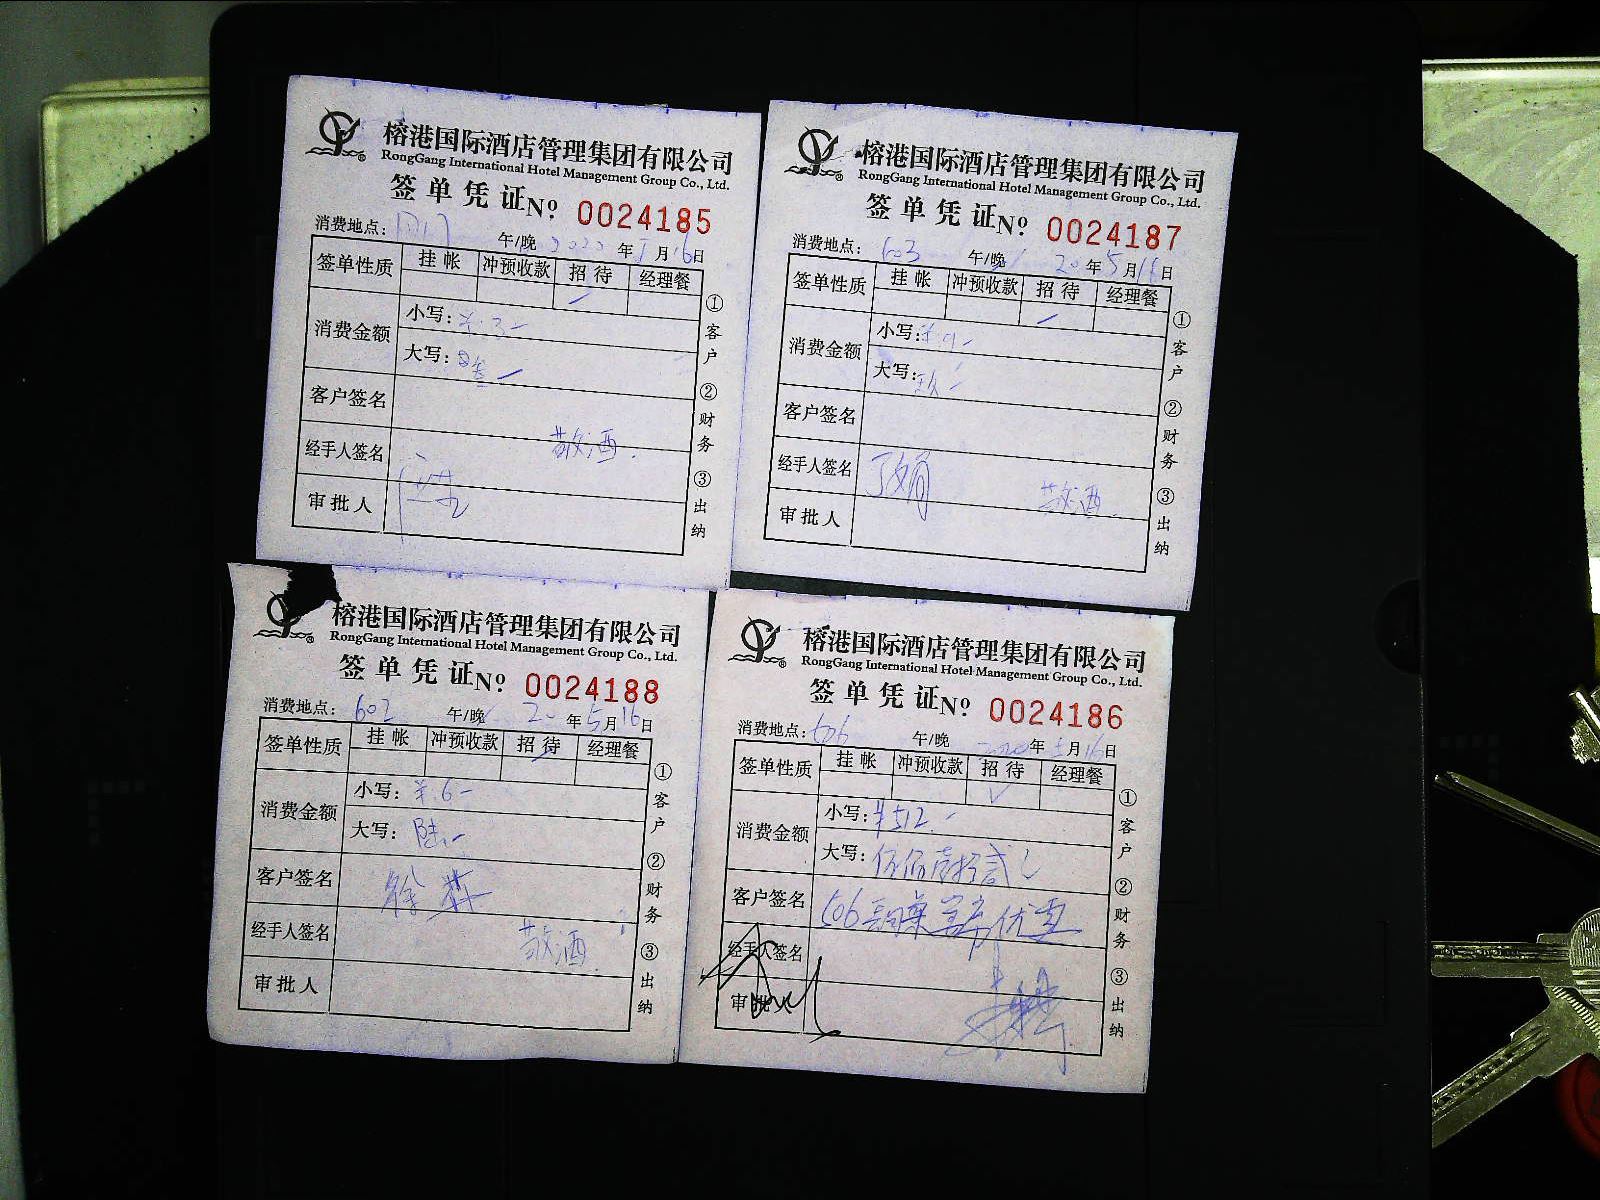 榕港国际酒店管理集团有限公司
RongGang International Hotel Management Group Co., Ltd.
签单凭证 Nº 0024185
消费地点: 午/晚 2020 年 5 月 16 日
签单性质 挂帐 冲预收款 招待 经理餐
消费金额 小写: ¥.3-
大写: 叁
客户签名
敬酒.
经手人签名
审批人
①客户 ②财务 ③出纳
榕港国际酒店管理集团有限公司
RongGang International Hotel Management Group Co., Ltd.
签单凭证 Nº 0024187
消费地点: 603 午/晚 20 年 5 月 16 日
签单性质 挂帐 冲预收款 招待 经理餐
消费金额 小写: ¥.9-
大写: 玖
客户签名
经手人签名
敬酒.
审批人
①客户 ②财务 ③出纳
榕港国际酒店管理集团有限公司
RongGang International Hotel Management Group Co., Ltd.
签单凭证 Nº 0024188
消费地点: 602 午/晚 20 年 5 月 16 日
签单性质 挂帐 冲预收款 招待 经理餐
消费金额 小写: ¥.6-
大写: 陆
客户签名 徐
经手人签名 敬酒.
审批人
①客户 ②财务 ③出纳
榕港国际酒店管理集团有限公司
RongGang International Hotel Management Group Co., Ltd.
签单凭证 Nº 0024186
消费地点: 606 午/晚 2020 年 5 月 16 日
签单性质 挂帐 冲预收款 招待 经理餐
消费金额 小写: ¥512.-
大写: 伍佰壹拾贰
客户签名 606 优惠
经手人签名
审批人
①客户 ②财务 ③出纳